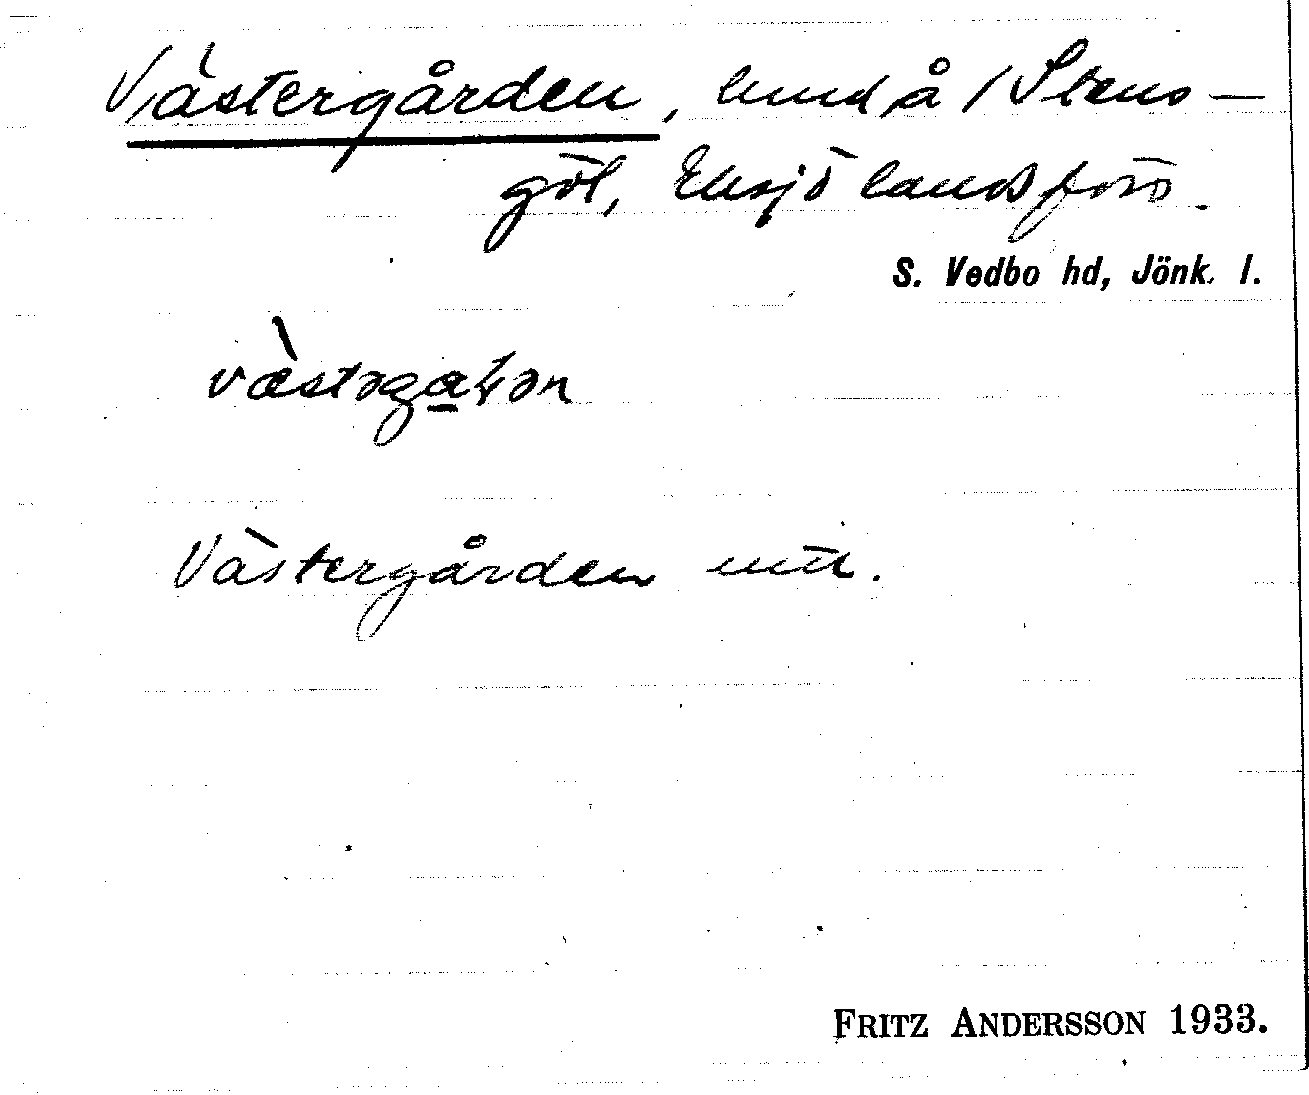 Västergården, hmd å 1 Stens-
göl, Eksjö landsförs.
S. Vedbo hd, Jönk. l.
Västergården mtl.
FRITZ ANDERSSON 1933.